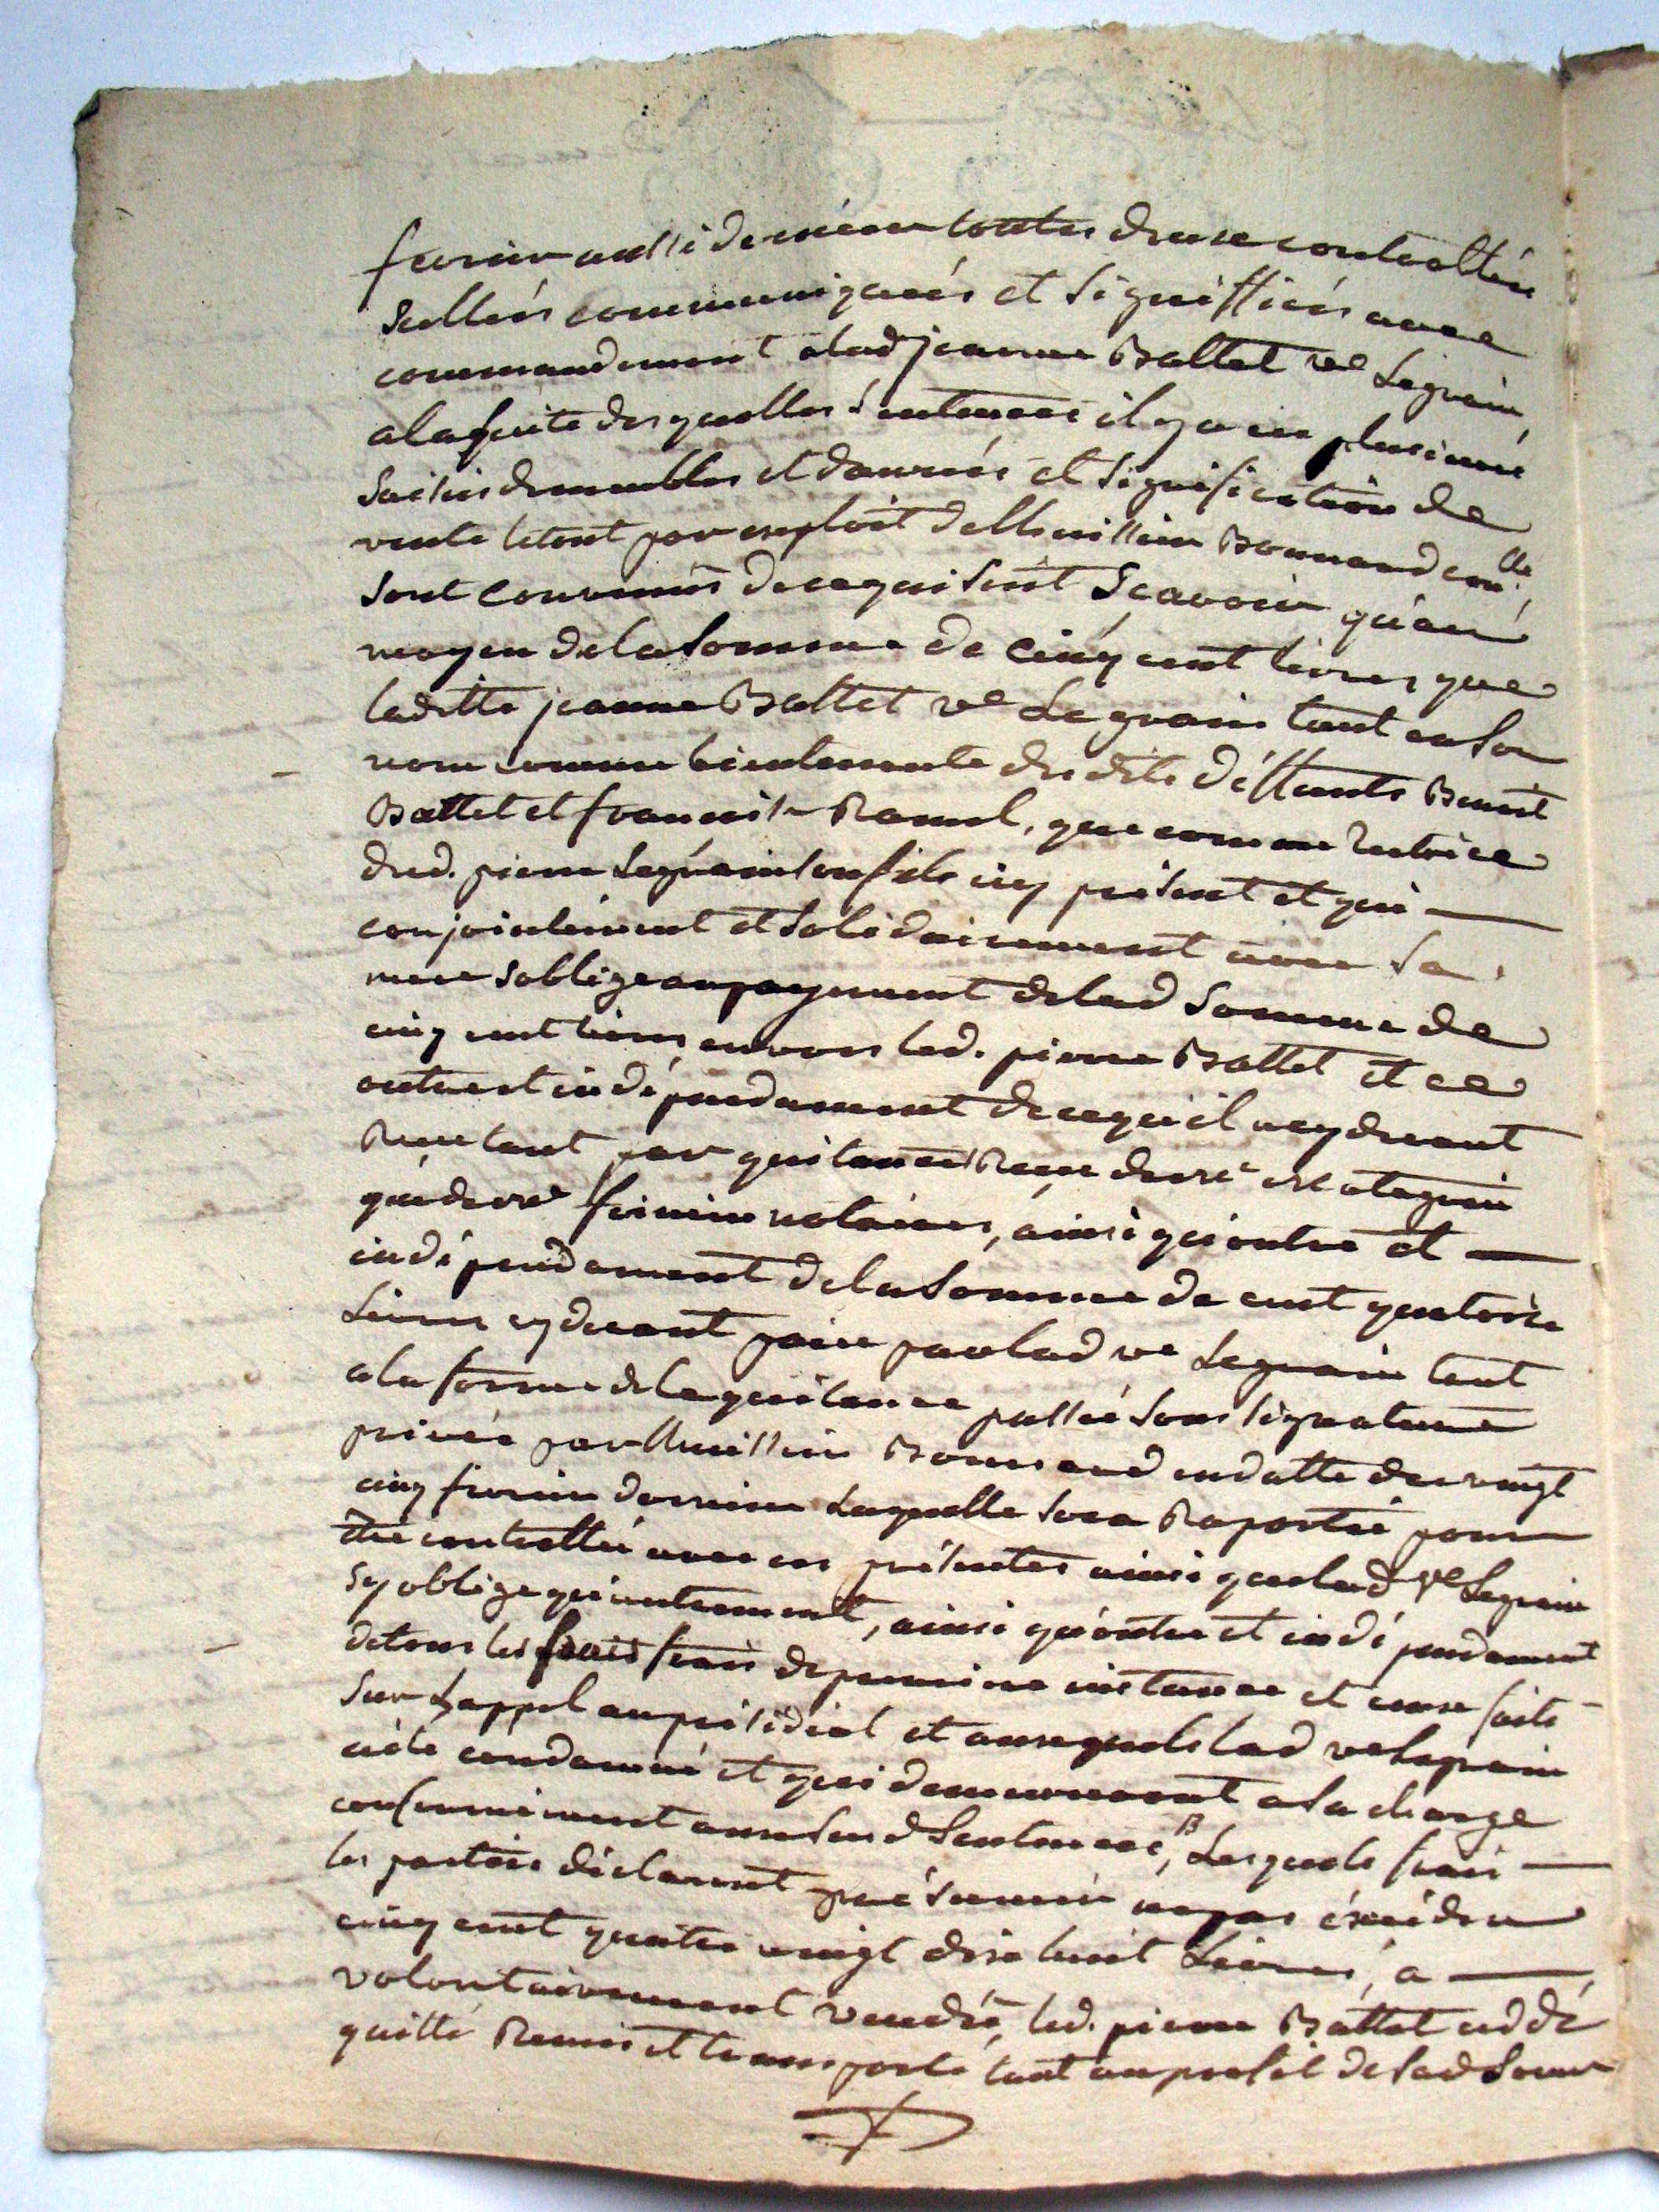 fevrier aussi dernier toutes deux controllées
scellées communiquées et signiffiées avec
commandement a lad jeanne Battet ve Legrain,
a la suite des quelles sentences il y a eu plusieurs
saisies de meubles et danrées et signification de
vente le tout par exploit de l'huissier Bonnand
sont convenus de ce qui suit Scavoir qu'au
moyen de la somme de cinq cent livres que
laditte jeanne Battet ve Legrain tant en son
nom comme bientenante desdits deffunts Benoit
Battet et françoise Ramel, que comme tutrice
dud. pierre Legrain son fils icy présent et qui
conjointement et solidairement avec sa
mere s'oblige au payement de lad somme de
cinq cent livres envers led. pierre Battet et ce
outre et indépendament de ce qu'il a cy devant
Reçu tant par quitances Reçue de me
que de me notaires, ainsi qu'outre et
indépendament de la somme de cent quatorze
Livres cy devant païée par lad ve Legrain tant
a la forme de la quitance passée sous signature
privée par l'huissier Bonnand en datte du vingt
cinq fevrier dernier Laquelle sera Raportée pour
être controllée avec ces présentes ainsi que lad ve Legrain
s'y oblige, ainsi qu'outre et indépendament
de tous les frais frais de premiere instance et ceux faits
sur L'appel au présidial et auxquels lad ve Legrain
a été condamné et qui demeureront a sa charge
conformément auxsusd Sentences, Lesquels frais
les parties déclarent n'e pas éxcéder
cinq cent quatre vingt dix huit Livres, a
volontairement vendu, led. pierre Battet cedé
quitté Remis et transporté tant au profit de sad soeur